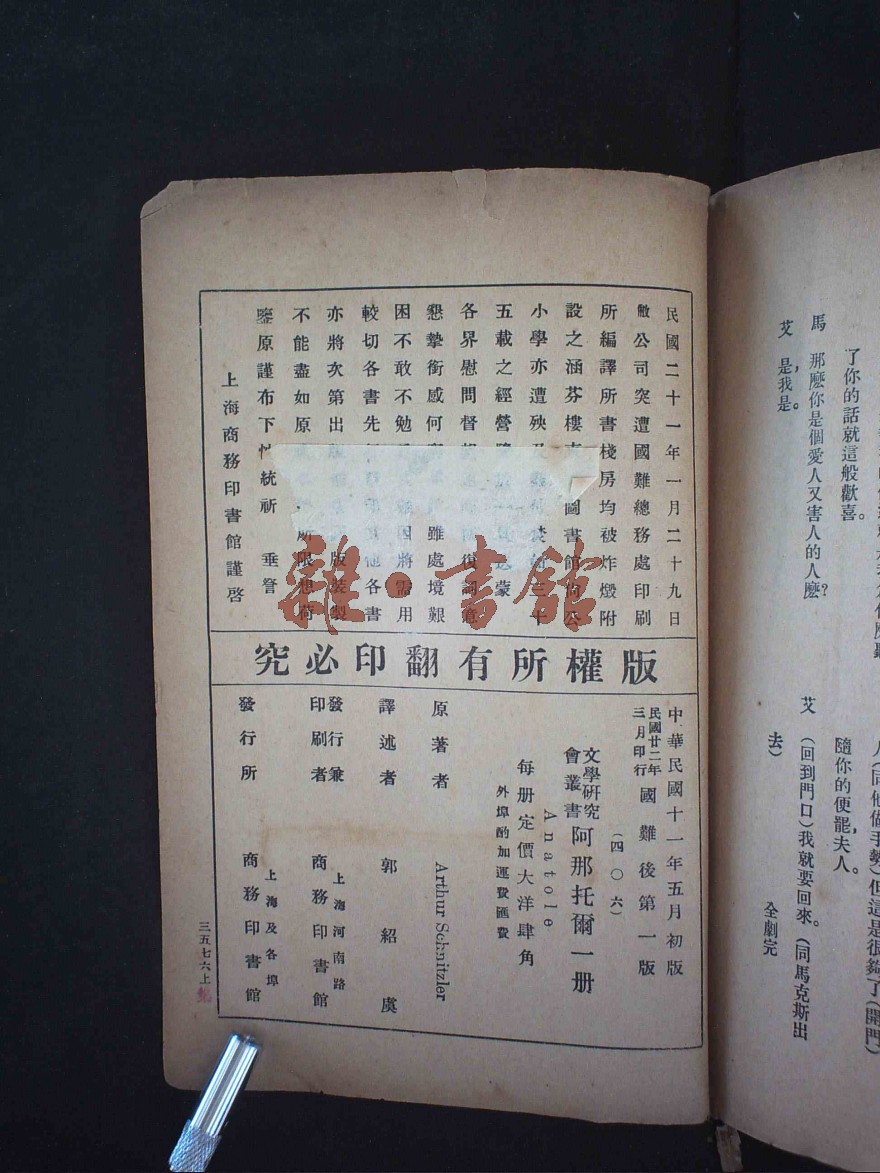 了你的話就這般歡喜。
馬 那麽你是個愛人又害人的人麽?
艾 是,我是。
人(同他做手勢)但這是很夠了(開門)
隨你的便罷,夫人。
艾 (回到門口)我就要回來。(同馬克斯出
去)
全劇完
民國二十一年一月二十九日
敝公司突遭國難總務處印刷
所編譯所書棧房均被炸燬附
設之涵芬樓 圖書館尚公
小學亦遭殃及 三十
五載之經營 蒙
各界慰問督 復詞意
懇摯銜感何 雖處境艱
困不敢不勉 因將需用
較切各書先 他各書
亦將次第出版 版裝製
不能盡如原 所限想荷
鑒原謹布下忱統祈 垂詧
上海商務印書館謹啓
版權所有翻印必究
中華民國十一年五月初版
民國廿二年三月印行 國難後第一版
(四〇六)
文學研究會叢書 阿那托爾一册
Anatole
每册定價大洋肆角
外埠酌加運費匯費
原著者 Arthur Schnitzler
譯述者 郭紹虞
發行兼印刷者 上海河南路 商務印書館
發行所 上海及各埠 商務印書館
三五七六上
雜·書館